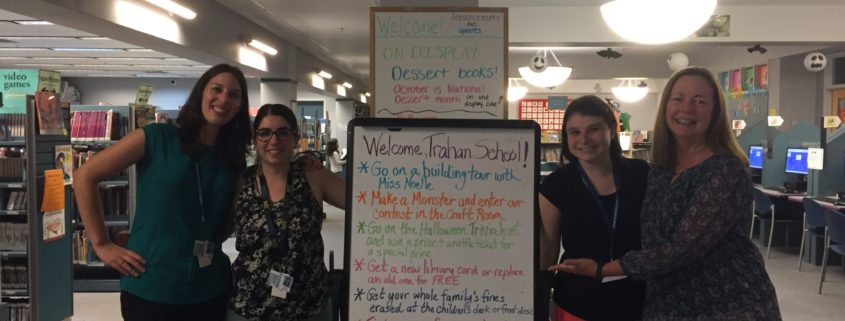 Welcome!
Announcements
AND
Updates
ON DISPLAY:
Dessert books!
October is National
Dessert month
on the
display case!
video
games
Welcome, Trahan School!
* Go on a building tour with
Miss Noelle
* Make a Monster and enter our
contest in the Craft Room
* Go on the Halloween Trivia hunt
and win a prize + raffle ticket for
a special prize
* Get a new library card or replace
an old one for FREE
* Get your whole family's fines
erased at the children's desk or front desk